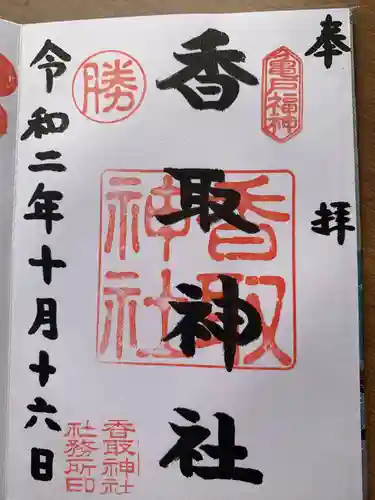 奉拝
亀戸福神
香取神社
香取神社
勝
令和二年十月十六日
香取神社
社務所印